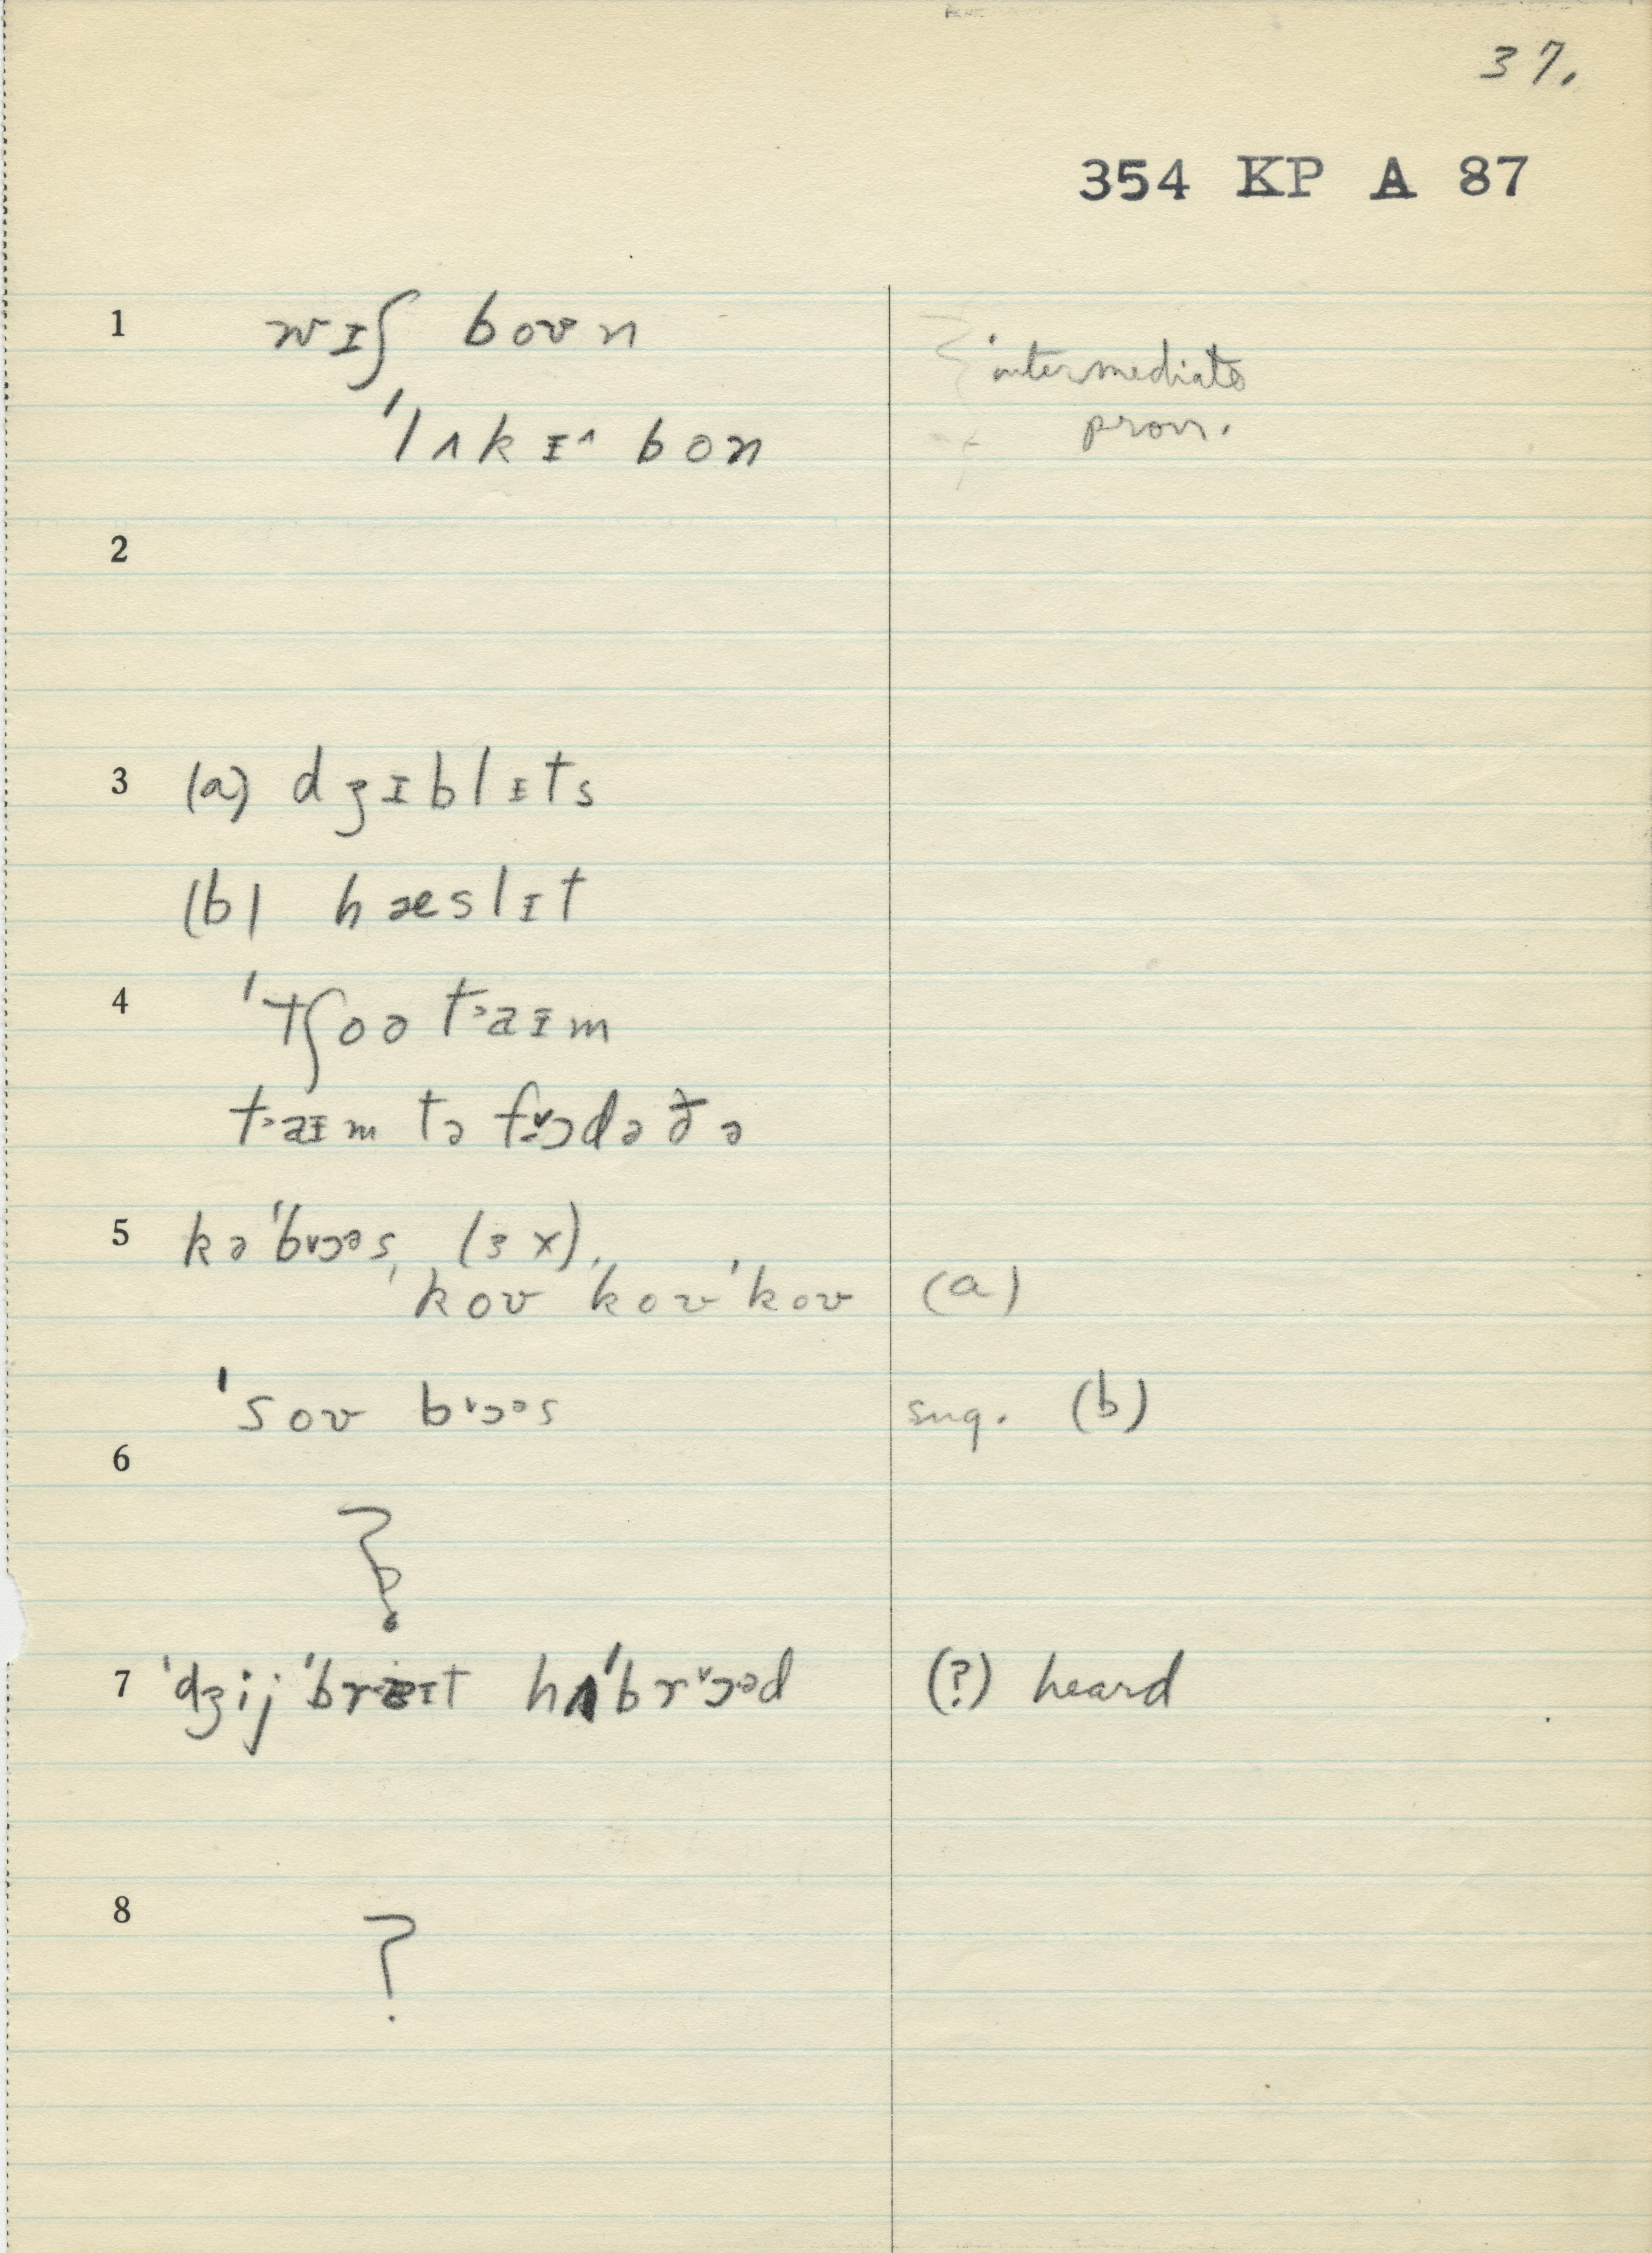 37.
354 KP A 87
1 wɪʃ boʊn { intermediate
ˈlʌkɪ^ bon pron.
2
3 (a) dʒɪblɪts
(b) hæslɪt
4 ˈtʃoə t˃aɪm
t˃aɪm tə fɔdə ðə
5 kəˈbɔəs, (3x),
ˈkoʊ ˈkoʊ ˈkoʊ (a)
ˈsoʊ bɔəs sug. (b)
6
?
7 ˈdʒij ˈbreɪt hʌˈbrɔəd (?) heard
8
?